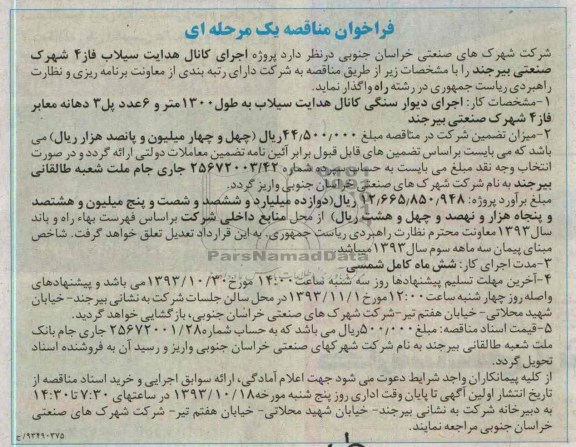 فراخوان مناقصه یک مرحله ای
شرکت شهرک های صنعتی خراسان جنوبی درنظر دارد پروژه اجرای کانال هدایت سیلاب فاز۴ شهرک
صنعتی بیرجند را با مشخصات زیر از طریق مناقصه به شرکت دارای رتبه بندی از معاونت برنامه ریزی و نظارت
راهبردی ریاست جمهوری در رشته راه واگذار نماید.
۱-مشخصات کار: اجرای دیوار سنگی کانال هدایت سیلاب به طول ۱۳۰۰متر و ۶عدد پل۳ دهانه معابر
فاز۴ شهرک صنعتی بیرجند
۲-میزان تضمین شرکت در مناقصه مبلغ ۴۴٫۵۰۰٫۰۰۰ریال (چهل و چهار میلیون و پانصد هزار ریال) می
باشد که می بایست براساس تضمین های قابل قبول برابر آئین نامه تضمین معاملات دولتی ارائه گردد و در صورت
انتخاب وجه نقد مبلغ می بایست به حساب سپرده شماره ۲۵۶۷۲۰۰۳/۴۲ جاری جام ملت شعبه طالقانی
بیرجند به نام شرکت شهرک های صنعتی خراسان جنوبی واریز گردد.
مبلغ برآورد پروژه: ۱۲٫۶۶۵٫۸۵۰٫۹۴۸ ریال(دوازده میلیارد و ششصد و شصت و پنج میلیون و هشتصد
و پنجاه هزار و نهصد و چهل و هشت ریال) از محل منابع داخلی شرکت براساس فهرست بهاء راه و باند
سال۱۳۹۳معاونت محترم نظارت راهبردی ریاست جمهوری. به این قرارداد تعدیل تعلق خواهد گرفت. شاخص
مبنای پیمان سه ماهه سوم سال۱۳۹۳میباشد
ParsNamadData
۳-مدت اجرای کار: شش ماه کامل شمسی
۴-آخرین مهلت تسلیم پیشنهادها روز سه شنبه ساعت ۱۴:۰۰ مورخ ۱۳۹۳/۱۰/۳۰می باشد و پیشنهادهای
واصله روز چهار شنبه ساعت۱۲:۰۰مورخ ۱۳۹۳/۱۱/۱در محل سالن جلسات شرکت به نشانی بیرجند- خیابان
شهید محلاتی- خیابان هفتم تیر-شرکت شهرک های صنعتی خراسان جنوبی، بازگشایی خواهد گردید.
۵-قیمت اسناد مناقصه: مبلغ ۵۰۰٫۰۰۰ریال می باشد که به حساب شماره۲۵۶۷۲۰۰۱/۲۸ جاری جام بانک
ملت شعبه طالقانی بیرجند به نام شرکت شهرکهای صنعتی خراسان جنوبی واریز و رسید آن به فروشنده اسناد
تحویل گردد.
از کلیه پیمانکاران واجد شرایط دعوت می شود جهت اعلام آمادگی، ارائه سوابق اجرایی و خرید اسناد مناقصه از
تاریخ انتشار اولین آگهی تا پایان وقت اداری روز پنج شنبه مورخه۱۳۹۳/۱۰/۱۸ در ساعتهای ۷:۳۰ تا ۱۴:۳۰
به دبیرخانه شرکت به نشانی بیرجند- خیابان شهید محلاتی- خیابان هفتم تیر- شرکت شهرک های صنعتی
خراسان جنوبی مراجعه نمایند.
۹۳۴۹۰۳۷۵/ج